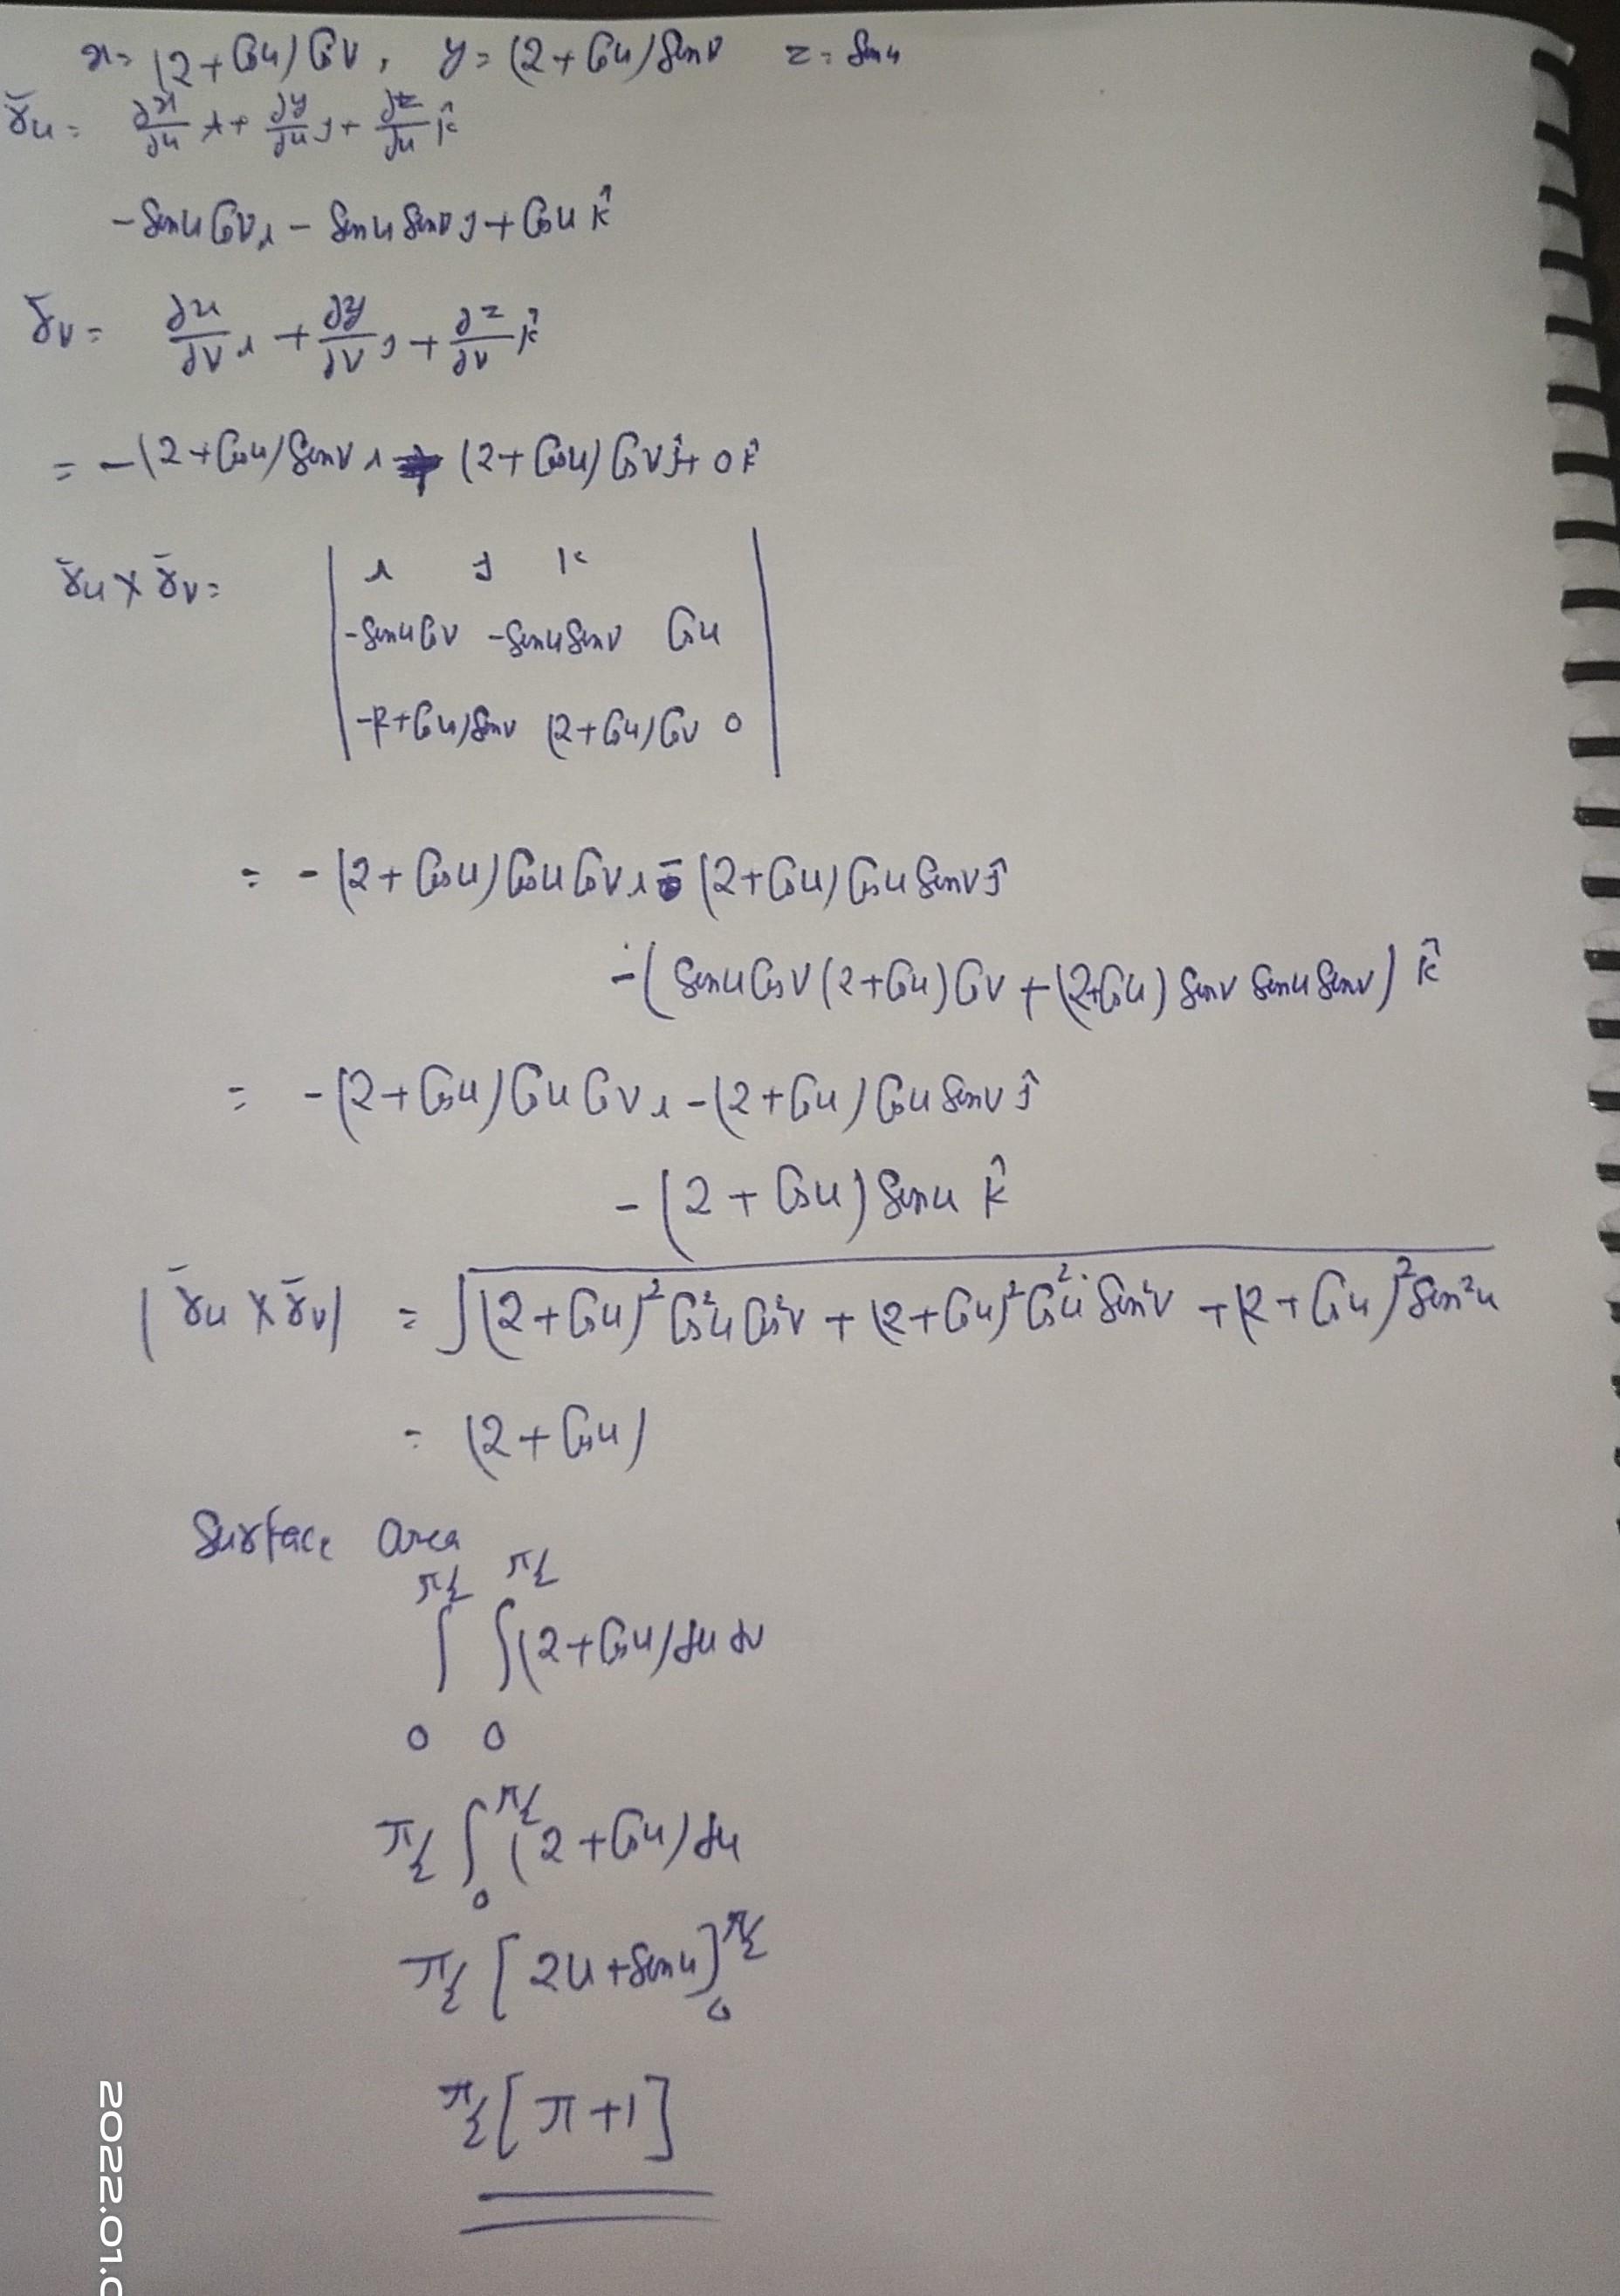 x = (2+Cosu)Cosv, y = (2+Cosu)Sinv z = Sinu
r̄u = ∂x/∂u i + ∂y/∂u j + ∂z/∂u k̂
-Sinu Cosv i - Sinu Sinv j + Cosu k̂
r̄v = ∂x/∂v i + ∂y/∂v j + ∂z/∂v k̂
= -(2+Cosu)Sinv i + (2+Cosu)Cosv ĵ + 0k̂
r̄u × r̄v =
| i j k |
| -Sinu Cosv -Sinu Sinv Cosu |
| -(2+Cosu)Sinv (2+Cosu)Cosv 0 |
= -(2+Cosu)Cosu Cosv i - (2+Cosu)Cosu Sinv ĵ
-(Sinu Cosv(2+Cosu)Cosv + (2+Cosu) Sinv Sinu Sinv) k̂
= -(2+Cosu)Cosu Cosv i - (2+Cosu)Cosu Sinv ĵ
-(2+Cosu)Sinu k̂
|r̄u × r̄v| = √((2+Cosu)²Cos²u Cos²v + (2+Cosu)²Cos²u Sin²v + (2+Cosu)²Sin²u)
= (2+Cosu)
Surface area
∫₀^π/2 ∫₀^π/2 (2+Cosu)du dv
π/2 ∫₀^π/2 (2+Cosu)du
π/2 [2u+Sinu]₀^π/2
π/2 [π+1]
2022.01.0